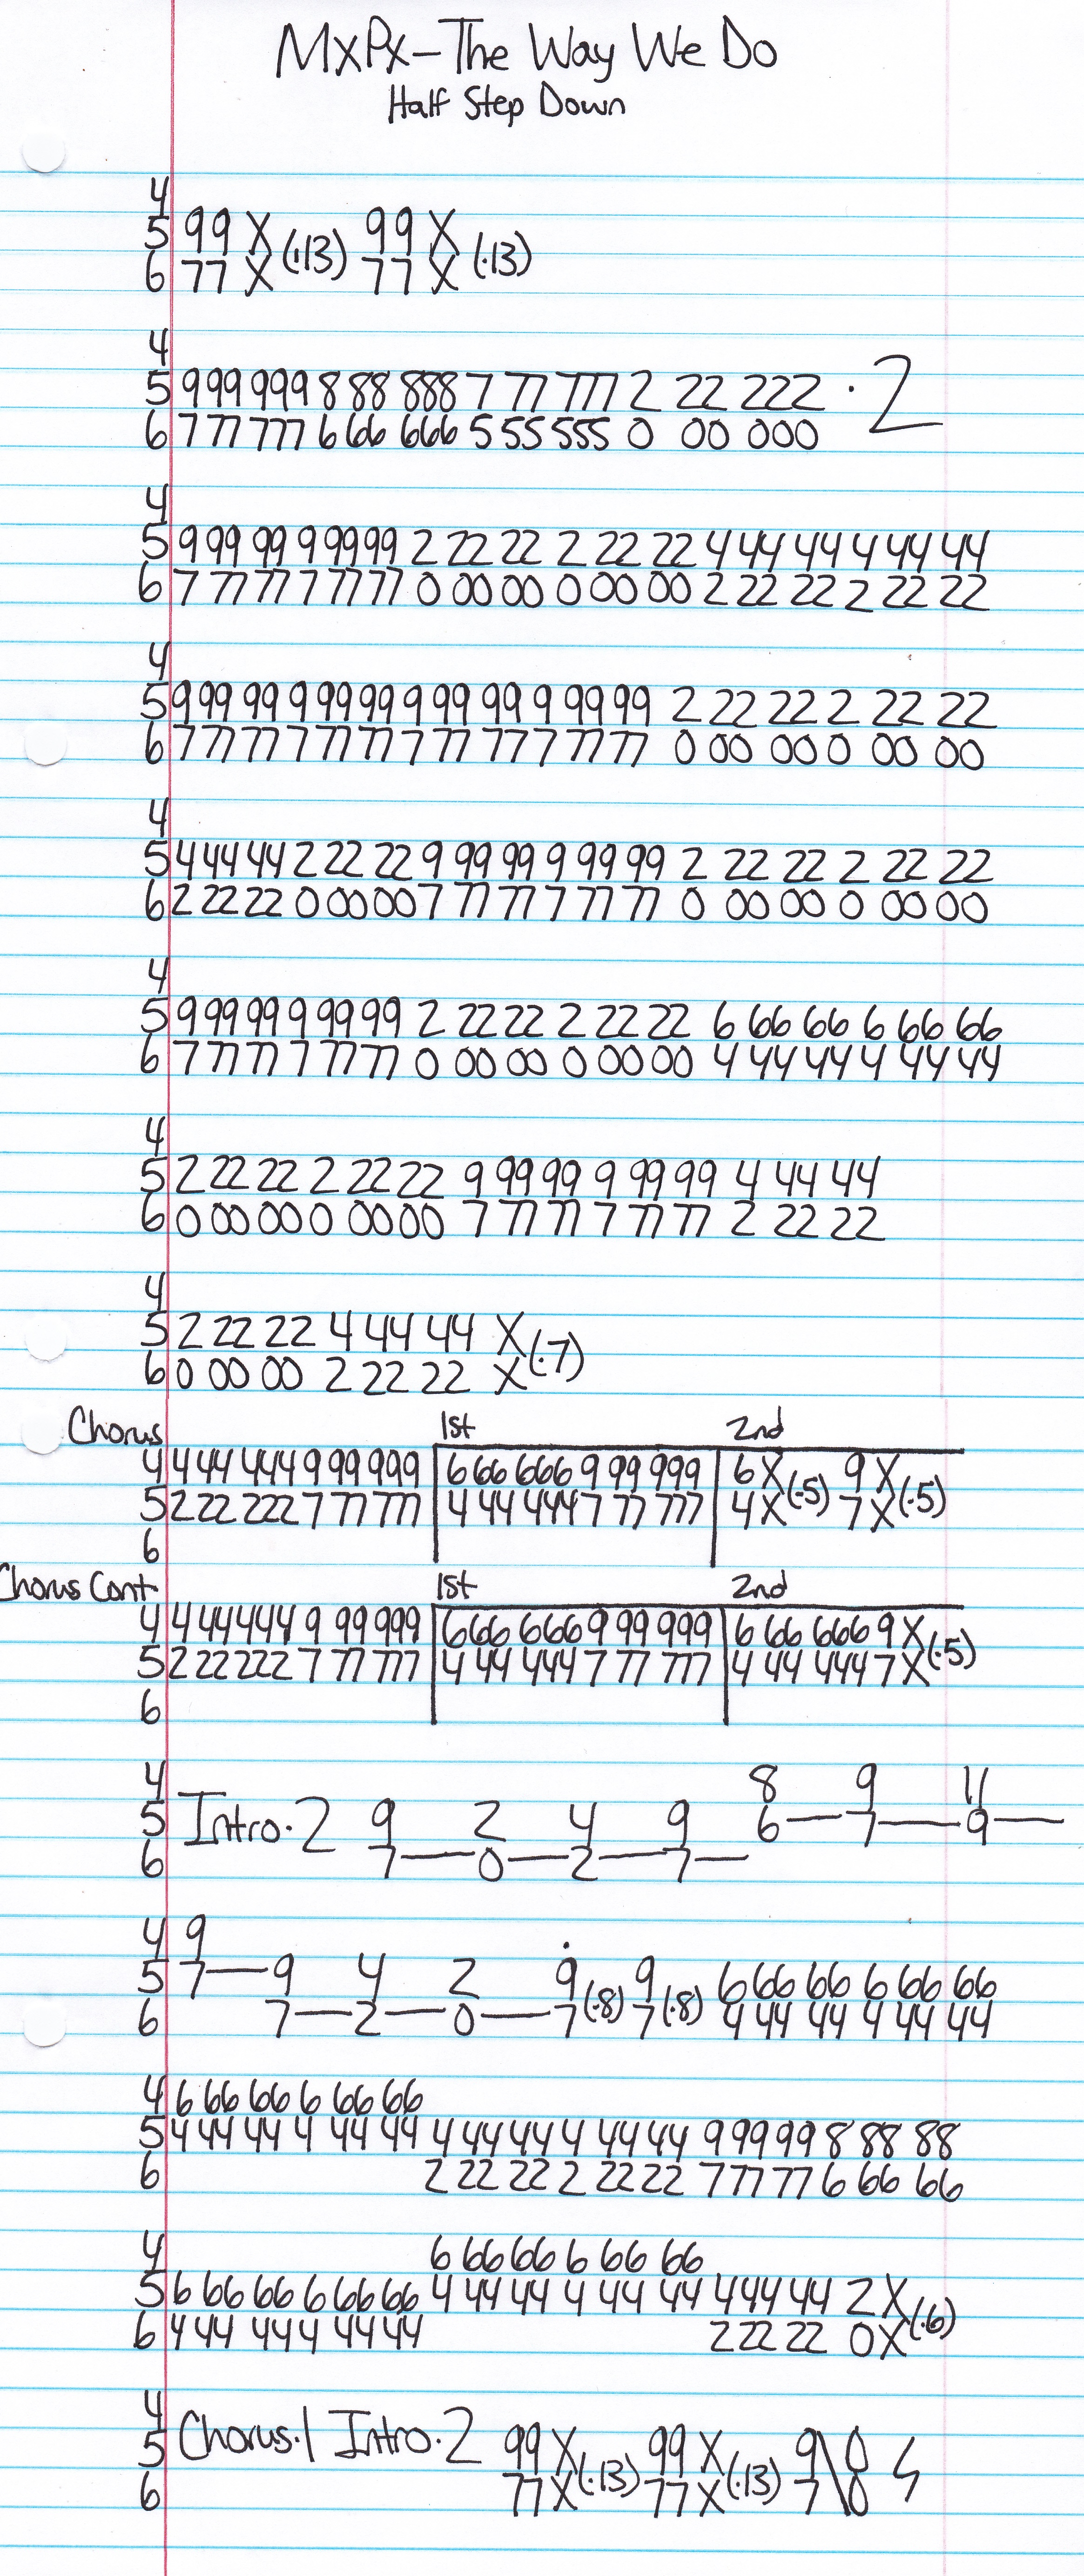 MxPx-The Way We Do
Half Step Down
4
5 99 X (·13) 99 X (·13)
6 77 X 77 X
4
5 9 99 999 8 88 888 7 77 777 2 22 222 ·2
6 7 77 777 6 66 666 5 55 555 0 00 000
4
5 9 99 99 9 99 99 2 22 22 2 22 22 4 44 44 4 44 44
6 7 77 77 7 77 77 0 00 00 0 00 00 2 22 22 2 22 22
4
5 9 99 99 9 99 99 9 99 99 9 99 99 2 22 22 2 22 22
6 7 77 77 7 77 77 7 77 77 7 77 77 0 00 00 0 00 00
4
5 4 44 44 2 22 22 9 99 99 9 99 99 2 22 22 2 22 22
6 2 22 22 0 00 00 7 77 77 7 77 77 0 00 00 0 00 00
4
5 9 99 99 9 99 99 2 22 22 2 22 22 6 66 66 6 66 66
6 7 77 77 7 77 77 0 00 00 0 00 00 4 44 44 4 44 44
4
5 2 22 22 2 22 22 9 99 99 9 99 99 4 44 44
6 0 00 00 0 00 00 7 77 77 7 77 77 2 22 22
4
5 2 22 22 4 44 44 X (·7)
6 0 00 00 2 22 22 X
Chorus 1st 2nd
4 4 44 444 9 99 999 6 66 666 9 99 999 6 X (·5) 9 X (·5)
5 2 22 222 7 77 777 4 44 444 7 77 777 4 X 7 X
6
Chorus Cont 1st 2nd
4 4 44 444 9 99 999 6 66 666 9 99 999 6 66 666 9 X (·5)
5 2 22 222 7 77 777 4 44 444 7 77 777 4 44 444 7 X
6
4 8 9 11
5 Intro·2 9 2 4 9 6— 7— 9—
6 7— 0— 2— 7—
4 9
5 7— 9 4 2 9 (·8) 9 (·8) 6 66 66 6 66 66
6 7— 2— 0— 7 7 4 44 44 4 44 44
4 6 66 66 6 66 66
5 4 44 44 4 44 44 4 44 44 4 44 44 9 99 99 8 88 88
6 2 22 22 2 22 22 7 77 77 6 66 66
4 6 66 66 6 66 66
5 6 66 66 6 66 66 4 44 44 4 44 44 4 44 44 2 X (·6)
6 4 44 44 4 44 44 2 22 22 0 X
4
5 Chorus·1 Intro·2 99 X (·13) 99 X (·13) 9\0
6 77 X 77 X 7\0